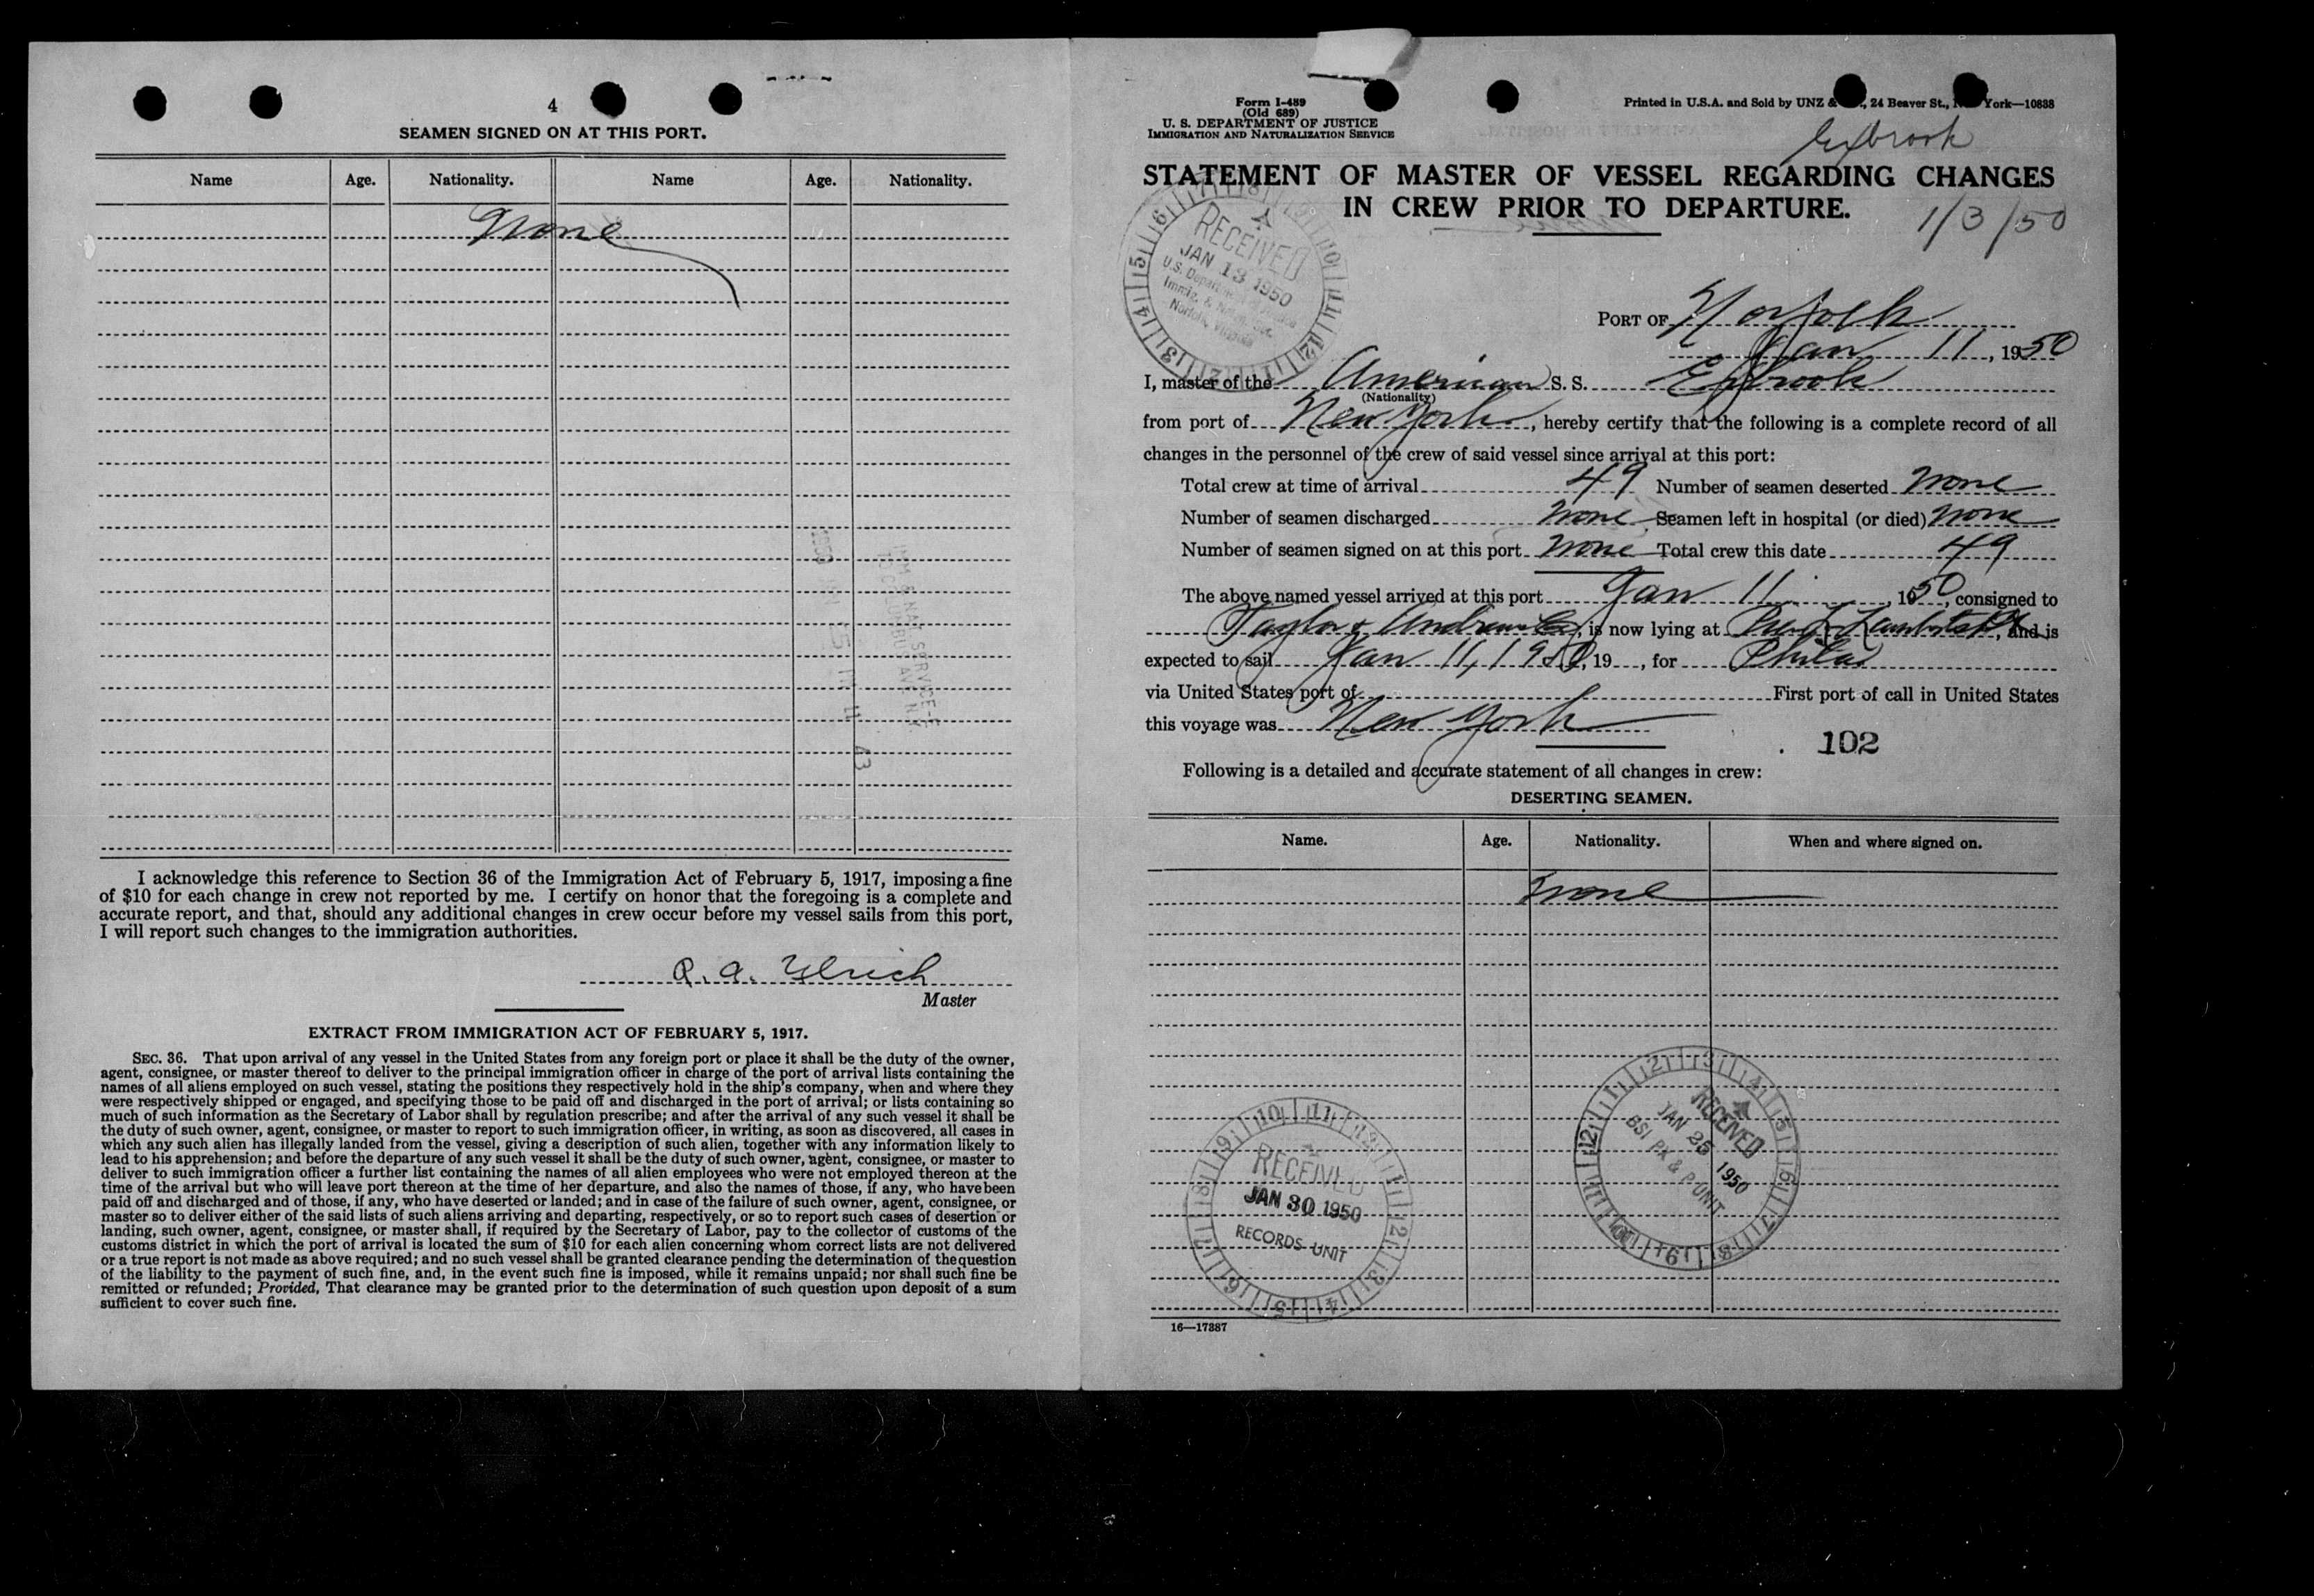 4
SEAMEN SIGNED ON AT THIS PORT.
Name Age. Nationality. Name Age. Nationality.
None
I acknowledge this reference to Section 36 of the Immigration Act of February 5, 1917, imposing a fine
of $10 for each change in crew not reported by me. I certify on honor that the foregoing is a complete and
accurate report, and that, should any additional changes in crew occur before my vessel sails from this port,
I will report such changes to the immigration authorities.
R. A. Ulrich
Master
EXTRACT FROM IMMIGRATION ACT OF FEBRUARY 5, 1917.
SEC. 36. That upon arrival of any vessel in the United States from any foreign port or place it shall be the duty of the owner,
agent, consignee, or master thereof to deliver to the principal immigration officer in charge of the port of arrival lists containing the
names of all aliens employed on such vessel, stating the positions they respectively hold in the ship's company, when and where they
were respectively shipped or engaged, and specifying those to be paid off and discharged in the port of arrival; or lists containing so
much of such information as the Secretary of Labor shall by regulation prescribe; and after the arrival of any such vessel it shall be
the duty of such owner, agent, consignee, or master to report to such immigration officer, in writing, as soon as discovered, all cases in
which any such alien has illegally landed from the vessel, giving a description of such alien, together with any information likely to
lead to his apprehension; and before the departure of any such vessel it shall be the duty of such owner, agent, consignee, or master to
deliver to such immigration officer a further list containing the names of all alien employees who were not employed thereon at the
time of the arrival but who will leave port thereon at the time of her departure, and also the names of those, if any, who have been
paid off and discharged and of those, if any, who have deserted or landed; and in case of the failure of such owner, agent, consignee, or
master so to deliver either of the said lists of such aliens arriving and departing, respectively, or so to report such cases of desertion or
landing, such owner, agent, consignee, or master shall, if required by the Secretary of Labor, pay to the collector of customs of the
customs district in which the port of arrival is located the sum of $10 for each alien concerning whom correct lists are not delivered
or a true report is not made as above required; and no such vessel shall be granted clearance pending the determination of the question
of the liability to the payment of such fine, and, in the event such fine is imposed, while it remains unpaid; nor shall such fine be
remitted or refunded; Provided, That clearance may be granted prior to the determination of such question upon deposit of a sum
sufficient to cover such fine.
Form I-489
(Old 689)
U. S. DEPARTMENT OF JUSTICE
IMMIGRATION AND NATURALIZATION SERVICE
Printed in U.S.A. and Sold by UNZ & , 24 Beaver St., York—10838
Exbrook
STATEMENT OF MASTER OF VESSEL REGARDING CHANGES
IN CREW PRIOR TO DEPARTURE.
1/3/50
RECEIVED
JAN 13 1950
U.S. Department of Justice
Immig. & Natz. Svc.
Norfolk, Virginia
PORT OF Norfolk
Jan 11, 1950
I, master of the American S. S. Exbrook
(Nationality)
from port of New York, hereby certify that the following is a complete record of all
changes in the personnel of the crew of said vessel since arrival at this port:
Total crew at time of arrival 49 Number of seamen deserted None
Number of seamen discharged None Seamen left in hospital (or died) None
Number of seamen signed on at this port None Total crew this date 49
The above named vessel arrived at this port Jan 11, 1950, consigned to
Taylor & Co, is now lying at , and is
expected to sail Jan 11, 1950, 19 , for Phila
via United States port of First port of call in United States
this voyage was New York
102
Following is a detailed and accurate statement of all changes in crew:
DESERTING SEAMEN.
Name. Age. Nationality. When and where signed on.
None
RECEIVED
JAN 25 1950
BSI PX & P UNIT
RECEIVED
JAN 30 1950
RECORDS UNIT
16—17387